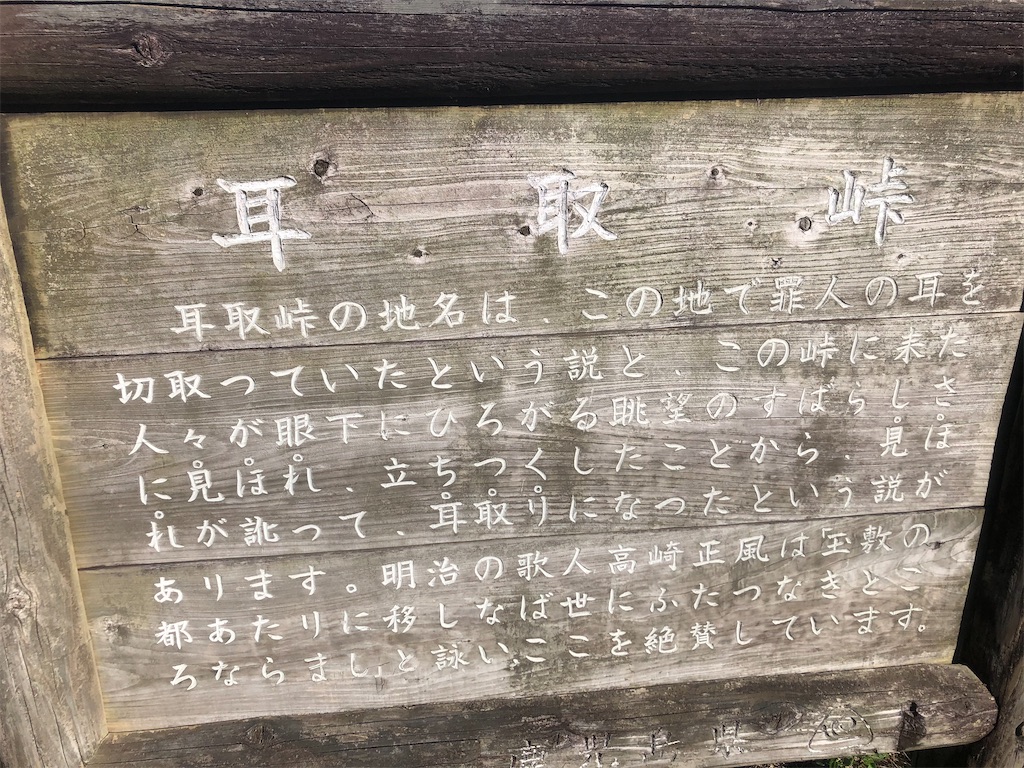 耳取峠
耳取峠の地名は、この地で罪人の耳を
切取っていたという説と、この峠に来た
人々が眼下にひろがる眺望のすばらしさ
に見ぽれ、立ちつくしたことから、見ぽ
れが訛って、耳取りになったという説が
あります。明治の歌人高崎正風は「玉敷の
都あたりに移しなば世にふたつなきとこ
ろならまし」と詠いここを絶賛しています。
鹿児島県